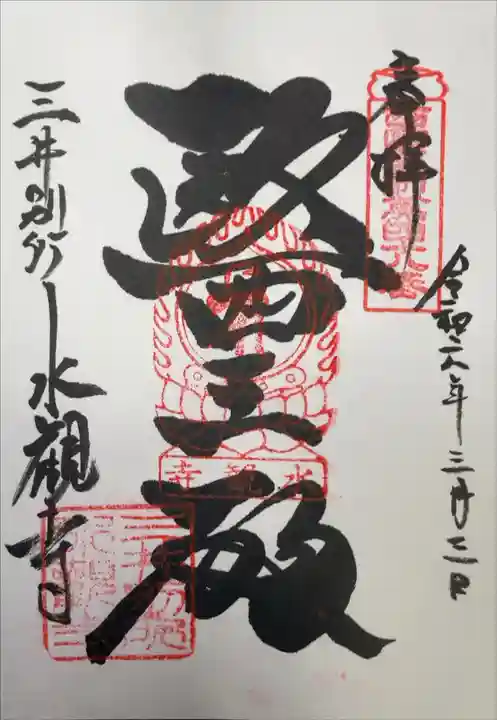 奉拝
令和六年三月三日
醫王殿
水觀寺
三井別所 水觀寺